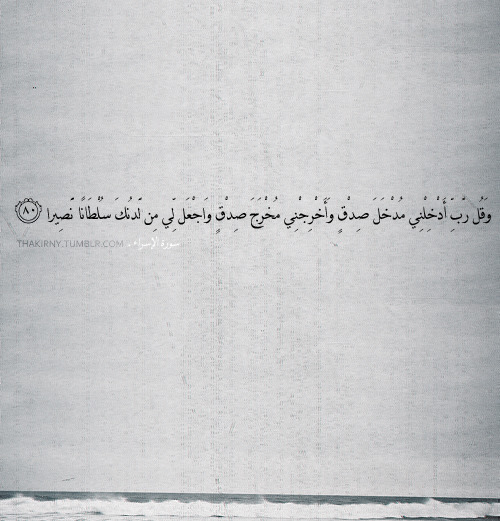 وَقُل رَّبِّ أَدْخِلْنِي مُدْخَلَ صِدْقٍ وَأَخْرِجْنِي مُخْرَجَ صِدْقٍ وَاجْعَل لِّي مِن لَّدُنكَ سُلْطَانًا نَّصِيرًا ٨٠
سورة الإسراء . THAKIRNY.TUMBLR.COM